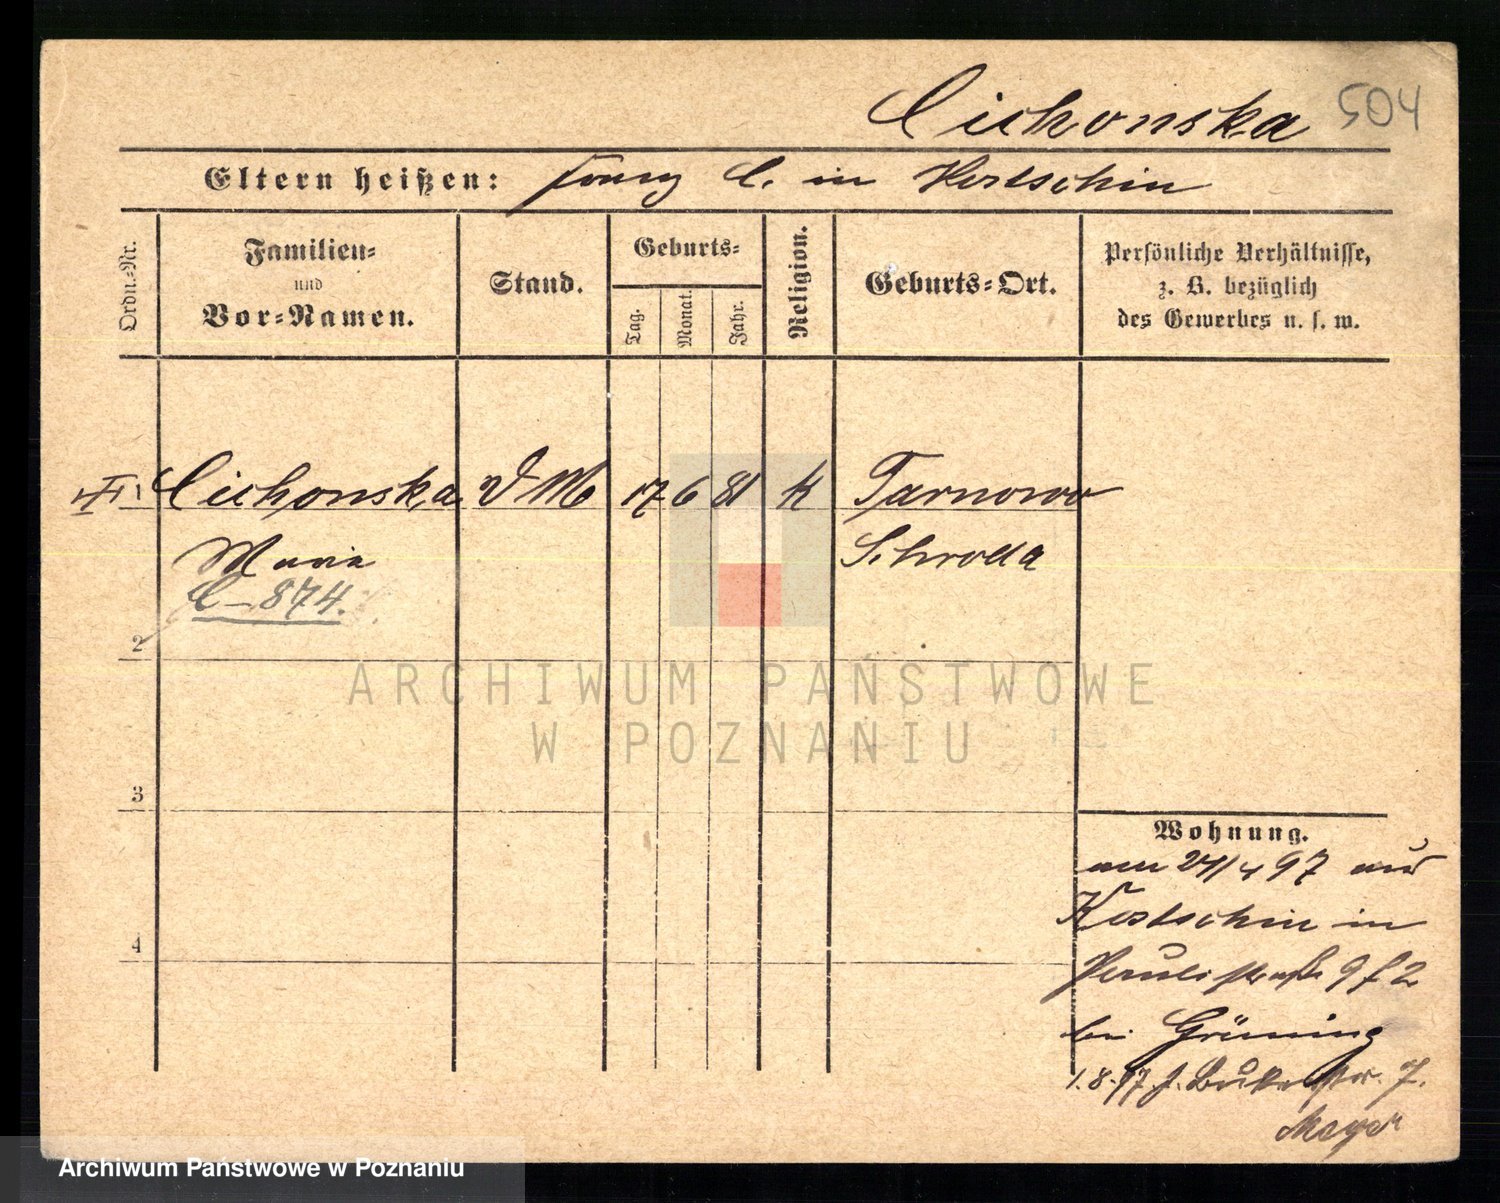 Cichonska 504
Eltern heißen: Franz C. in Kostschin
Ordn.-Nr.
Familien-
und
Vor-Namen.
Stand.
Geburts-
Tag.
Monat.
Jahr.
Religion.
Geburts-Ort.
Persönliche Verhältnisse,
z. B. bezüglich
des Gewerbes u. s. w.
1 Cichonska D M 17 6 81 k Tarnowo
Maria Schroda
C-874.
2
3
4
Wohnung.
am 24/4 97 aus
Kostschin in
Paulistraße 9 f 2
bei Grüning
1.8.97 f. Bukerstr. 7.
Meyer
ARCHIWUM PAŃSTWOWE
W POZNANIU
Archiwum Państwowe w Poznaniu